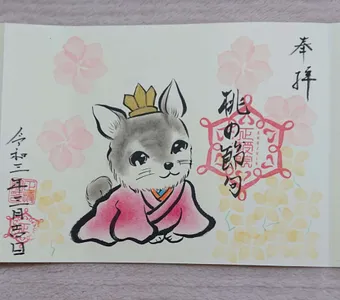 奉拝
桃の節句
令和三年三月三日